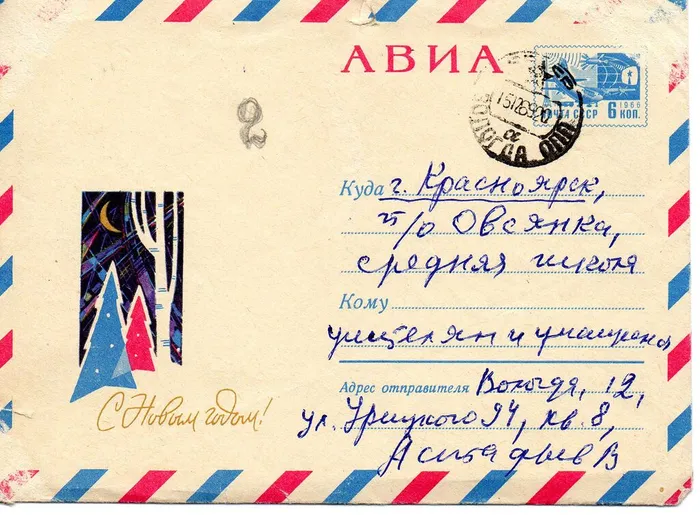 АВИА
1966
ПОЧТА СССР 6 КОП.
ВОЛОГДА ОПП
2
Куда г. Красноярск,
п/о Овсянка,
средняя школа
Кому
учителям и учащимся
Адрес отправителя Вологда, 12,
ул. Урицкого 94, кв. 8,
Астафьев В
С Новым годом!